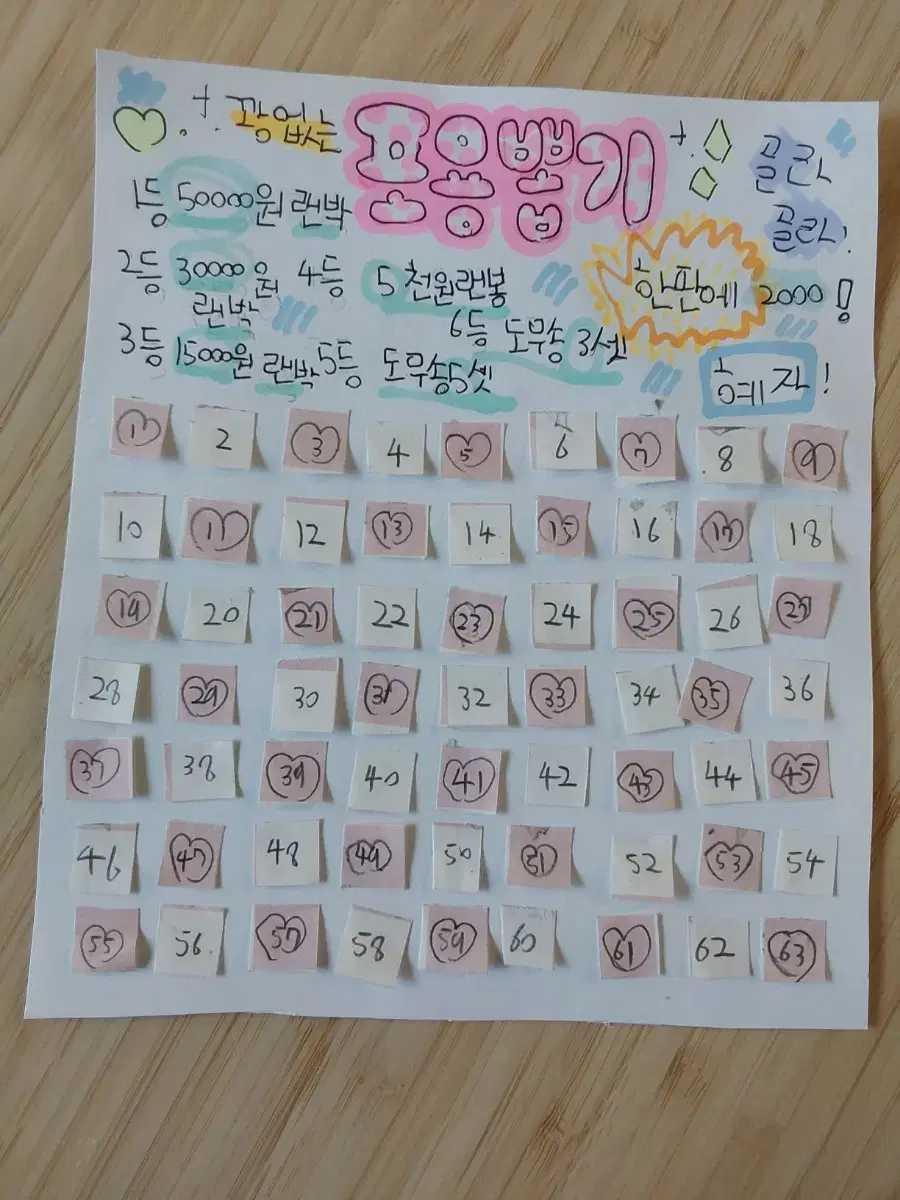 꽝없는 용용뽑기
골라 골라!
1등 50000원 랜박
2등 30000원 랜박
4등 5천원랜봉
한판에 2000!
3등 15000원 랜박
5등 도무송5셋
6등 도무송 3셋
혜자!
1 2 3 4 5 6 7 8 9
10 11 12 13 14 15 16 17 18
19 20 21 22 23 24 25 26 27
28 29 30 31 32 33 34 35 36
37 38 39 40 41 42 43 44 45
46 47 48 49 50 51 52 53 54
55 56 57 58 59 60 61 62 63